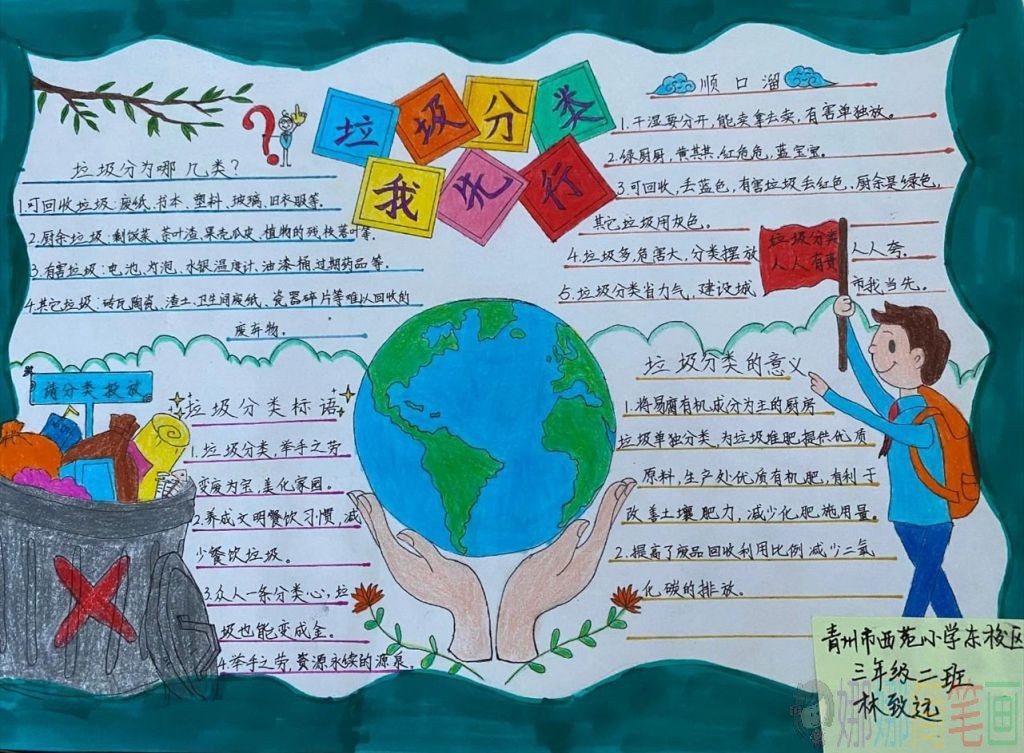 垃圾分类
我先行
垃圾分为哪几类?
1.可回收垃圾:废纸、书本、塑料、玻璃、旧衣服等.
2.厨余垃圾:剩饭菜、茶叶渣、果壳瓜皮、植物的残枝落叶等.
3.有害垃圾:电池、灯泡、水银温度计、油漆桶、过期药品等.
4.其它垃圾:砖瓦陶瓷、渣土、卫生间废纸、瓷器碎片等难以回收的
废弃物。
顺口溜
1.干湿要分开,能卖拿去卖,有害单独放。
2.绿厨厨,黄其其,红危危,蓝宝宝。
3.可回收,丢蓝色,有害垃圾丢红色,厨余是绿色,
其它垃圾用灰色。
4.垃圾多,危害大,分类摆放 人人夸.
5.垃圾分类省力气,建设城 市我当先.
垃圾分类
人人有责
请分类投放
垃圾分类标语
1.垃圾分类,举手之劳
变废为宝,美化家园。
2.养成文明餐饮习惯,减
少餐饮垃圾。
3.众人一条分类心,垃
圾也能变成金。
4.举手之劳,资源永续的源泉.
垃圾分类的意义
1.将易腐有机成分为主的厨房
垃圾单独分类,为垃圾堆肥提供优质
原料,生产处优质有机肥,有利于
改善土壤肥力,减少化肥施用量。
2.提高了废品回收利用比例,减少二氧
化碳的排放。
青州市西苑小学东校区
三年级二班
林致远